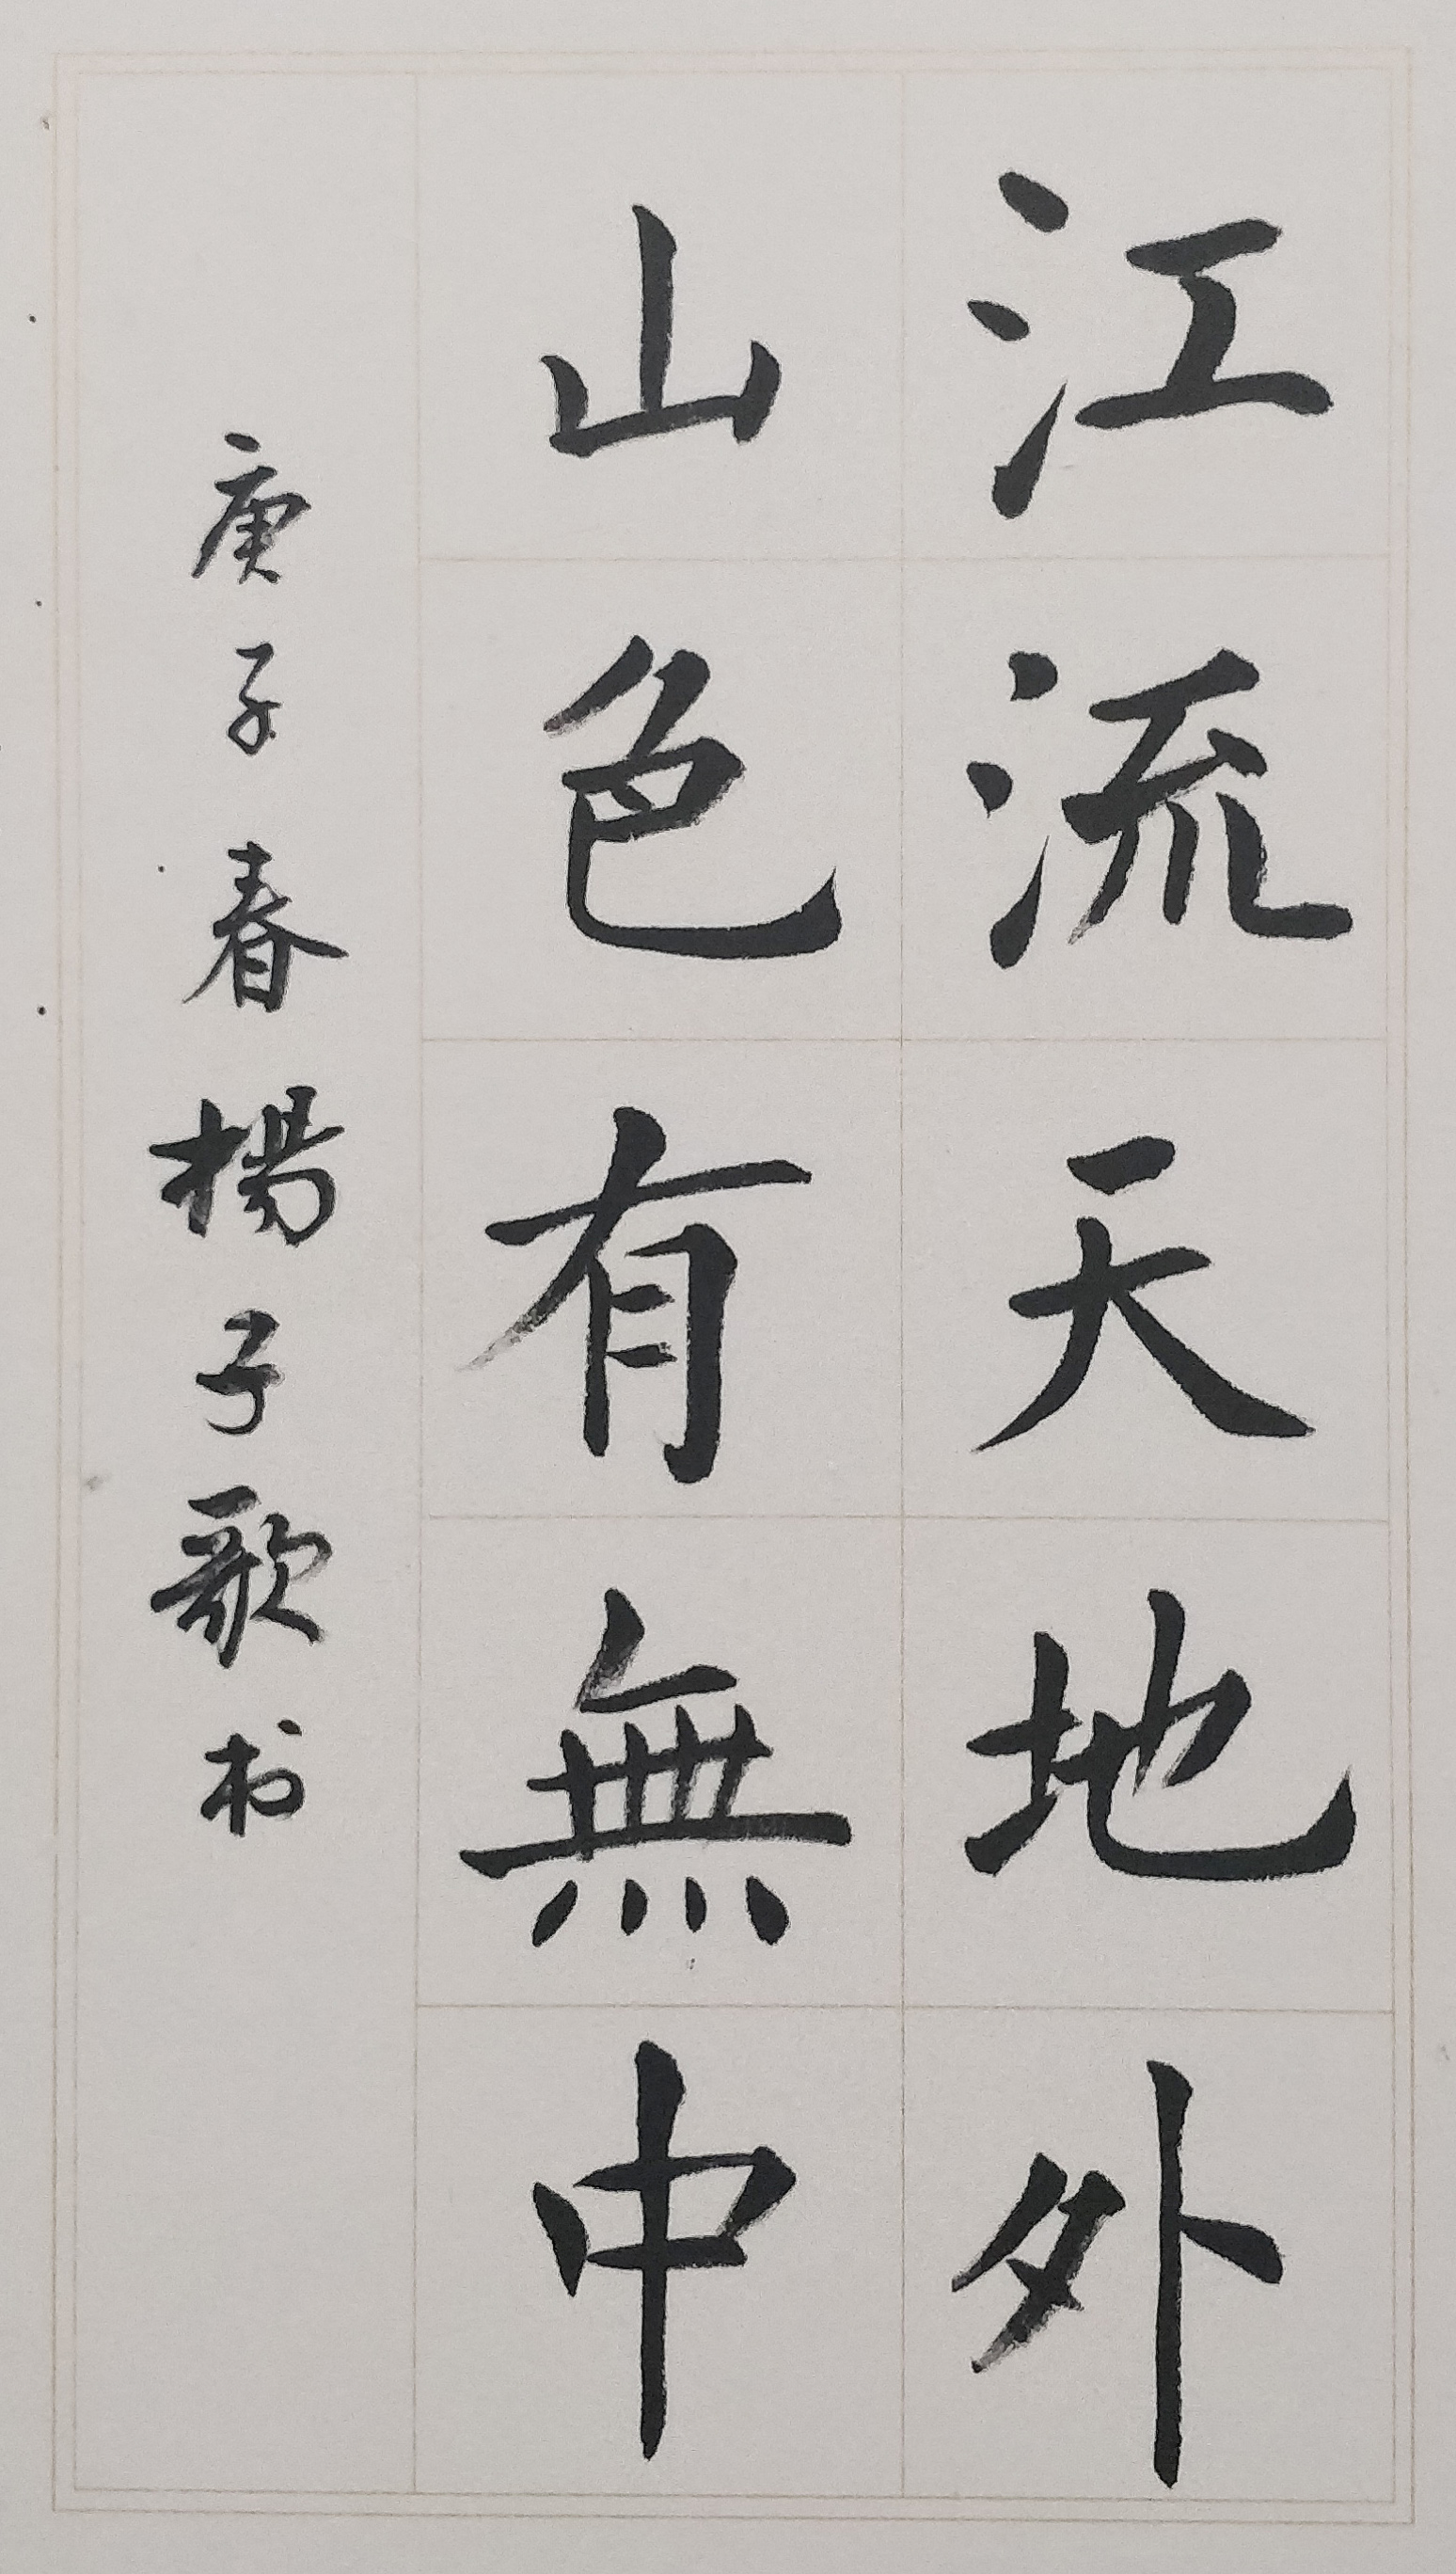 江流天地外
山色有無中
庚子春楊子歌书